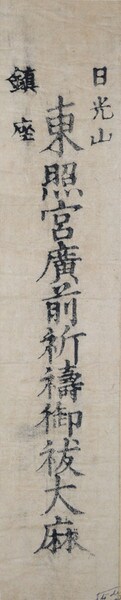 日光山
鎮座
東照宮廣前祈禱御祓大麻